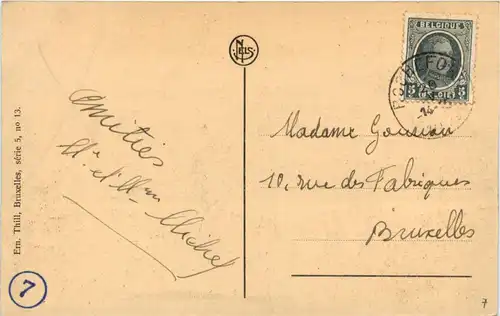 Ern. Thill, Bruxelles, série 5, no 13.
NELS
BELGIQUE
5
5
BELGIË
ROCHEFORT
Amitiés
Mr et Mme Michel
Madame
10, rue des Fabriques
Bruxelles
7
7